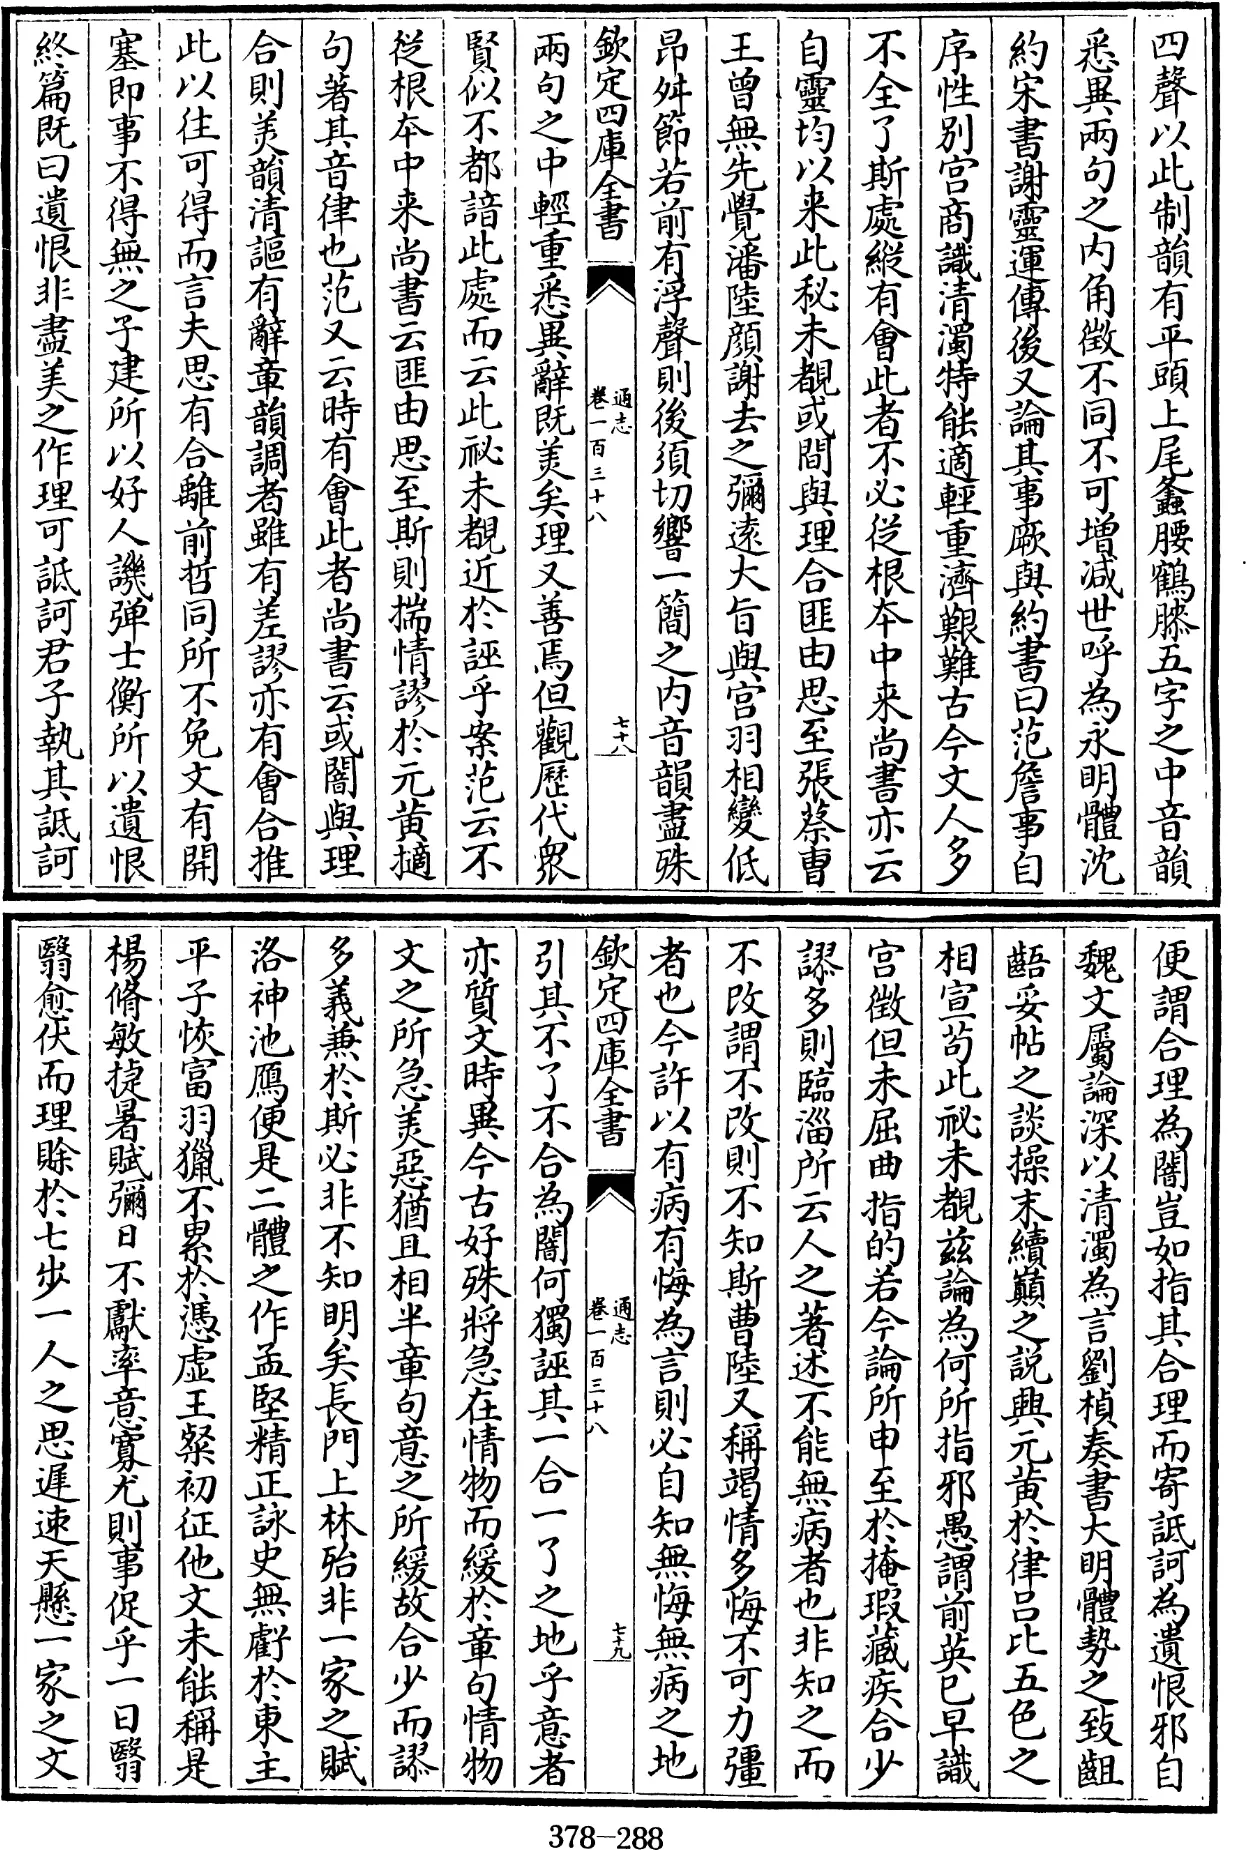 四聲以此制韻有平頭上尾蠭腰鶴膝五字之中音韻
悉異兩句之内角徵不同不可增减世呼為永明體沈
約宋書謝靈運傳後又論其事厥與約書曰范詹事自
序性别宫商識清濁特能適輕重濟艱難古今文人多
不全了斯處縱有會此者不必從根本中来尚書亦云
自靈均以来此秘未覩或闇與理合匪由思至張蔡曹
王曾無先覺潘陸顔謝去之彌逺大旨與宫羽相變低
昂舛節若前有浮聲則後須切響一簡之内音韻盡殊
欽定四庫全書
通志
卷一百三十八
七十八
兩句之中輕重悉異辭既美矣理又善焉但觀歴代衆
賢似不都諳此處而云此祕未覩近於誣乎案范云不
從根本中来尚書云匪由思至斯則揣情謬於元黄擿
句著其音律也范又云時有會此者尚書云或闇與理
合則美韻清謳有辭章韻調者雖有差謬亦有會合推
此以往可得而言夫思有合離前哲同所不免文有開
塞即事不得無之子建所以好人譏弹士衡所以遺恨
終篇既曰遺恨非盡美之作理可詆訶君子執其詆訶
便謂合理為闇豈如指其合理而寄詆訶為遺恨邪自
魏文屬論深以清濁為言劉楨奏書大明體勢之致齟
齬妥帖之談操末續巔之説興元黄於律吕比五色之
相宣苟此祕未覩兹論為何所指邪愚謂前英已早識
宫徵但未屈曲指的若今論所申至於掩瑕藏疾合少
謬多則臨淄所云人之著述不能無病者也非知之而
不改謂不改則不知斯曹陸又稱竭情多悔不可力彊
者也今許以有病有悔為言則必自知無悔無病之地
欽定四庫全書
通志
卷一百三十八
七十九
引其不了不合為闇何獨誣其一合一了之地乎意者
亦質文時異今古好殊將急在情物而緩於章句情物
文之所急美惡猶且相半章句意之所緩故合少而謬
多義兼於斯必非不知明矣長門上林殆非一家之賦
洛神池鴈便是二體之作孟堅精正詠史無虧於東主
平子恢富羽獵不累於憑虛王粲初征他文未能稱是
楊脩敏捷暑賦彌日不獻率意寡尤則事促乎一日翳
翳愈伏而理賒於七步一人之思遲速天懸一家之文
378-288